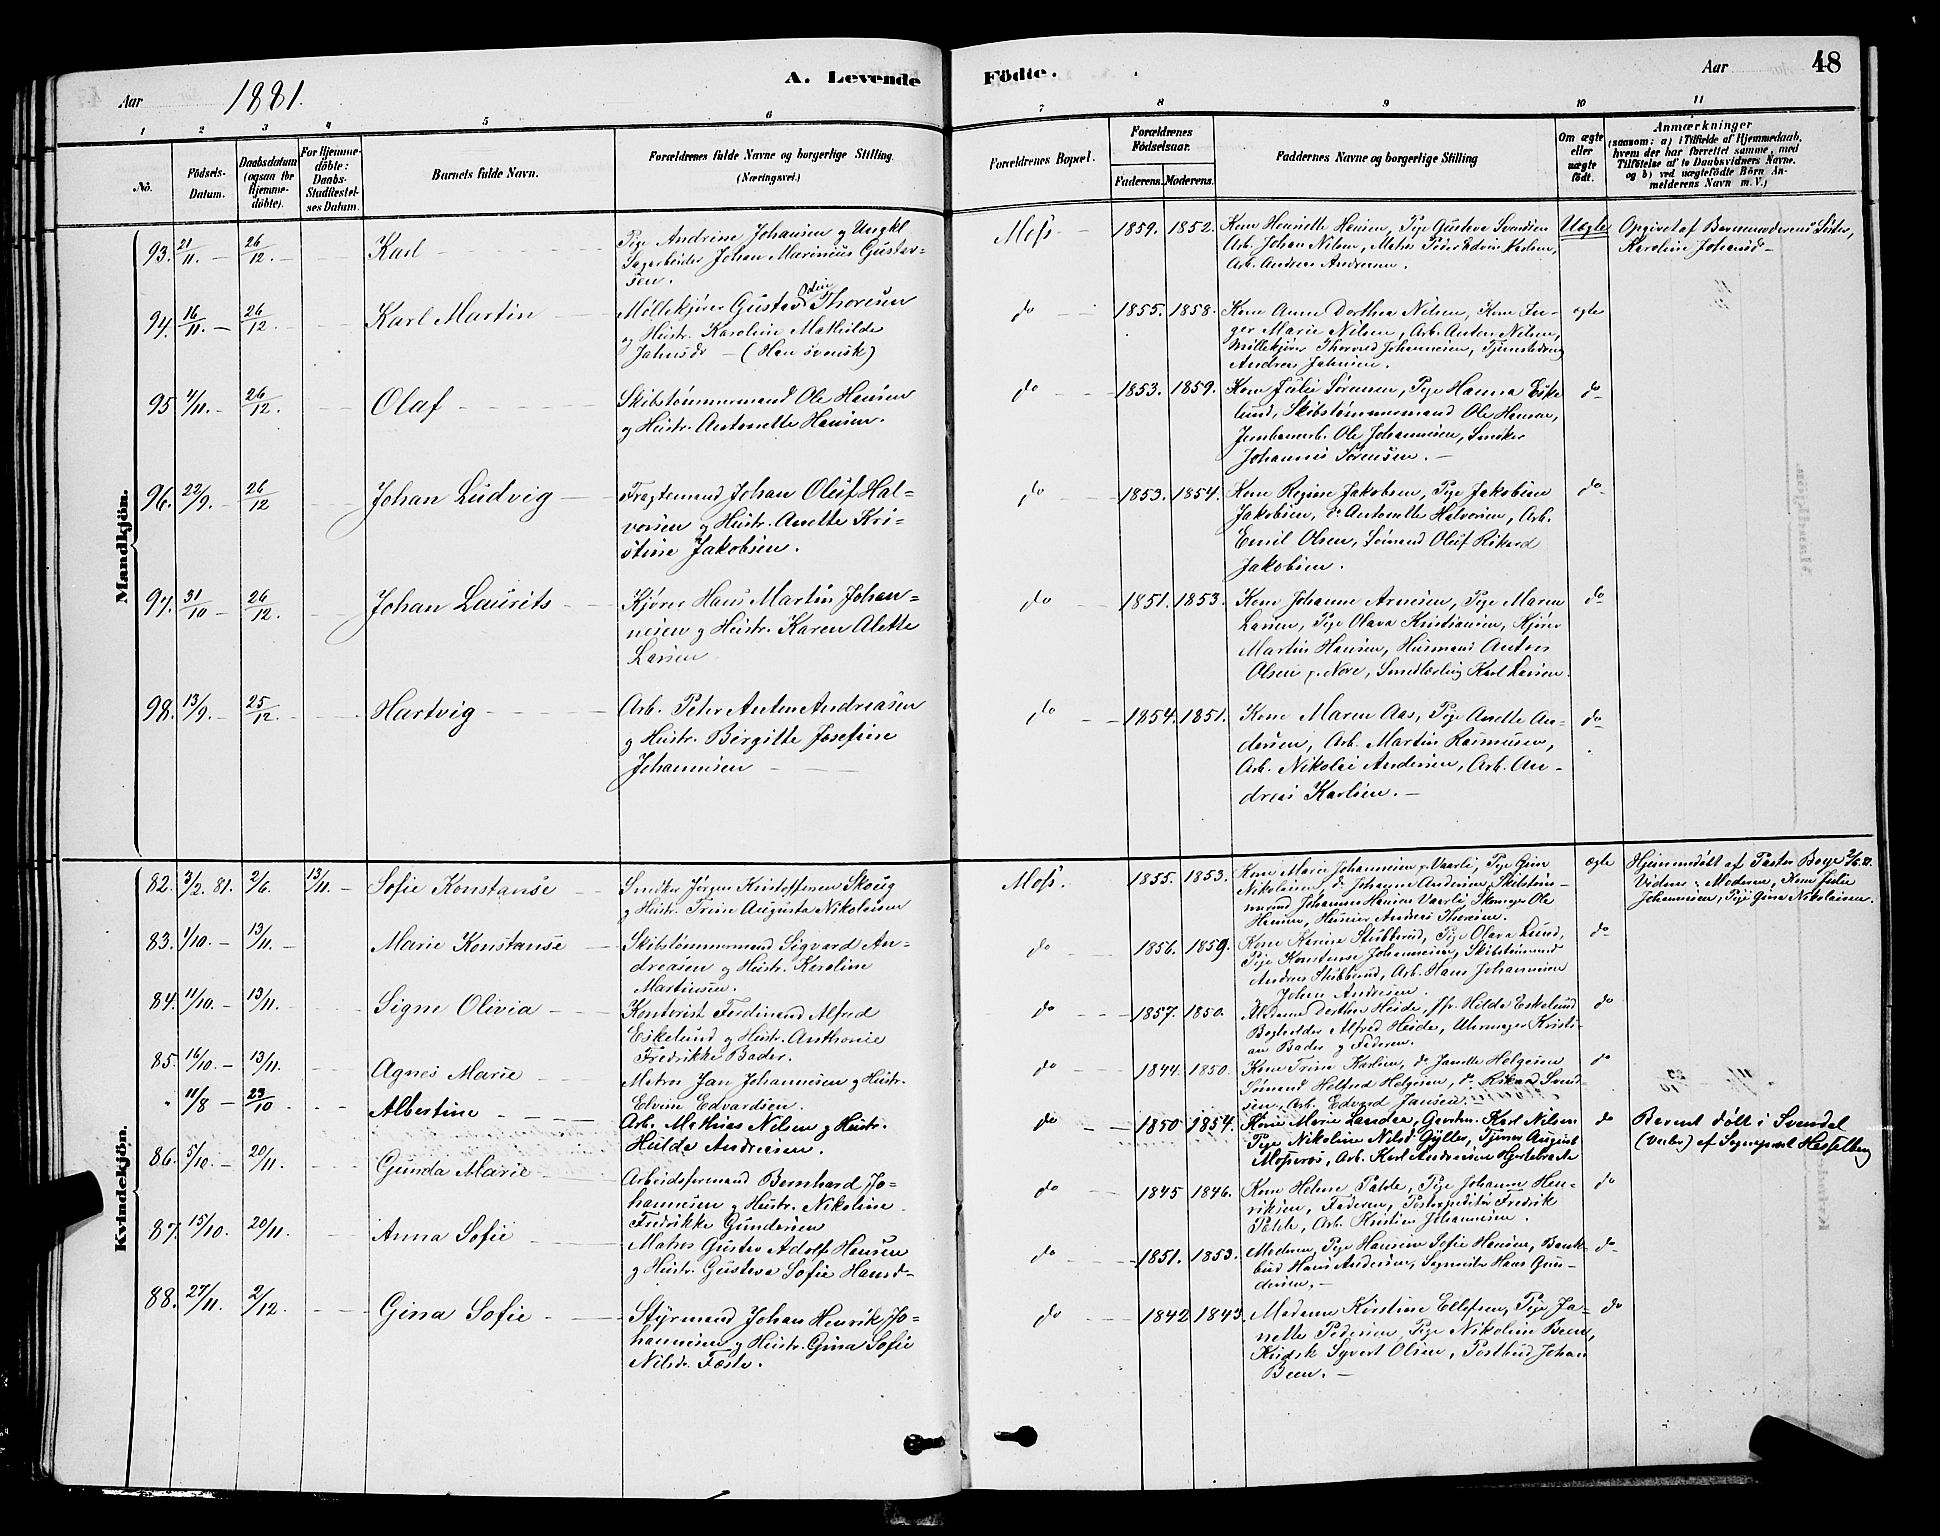 Aar 1881. A. Levende Födte. Aar 48
1 2 3 4 5 6 7 8 9 10 11
No. Födsels-Datum. Daabsdatum (ogsaa for Hjemme-döbte). For Hjemme-döbte: Daabs-Stadfæstel-ses Datum. Barnets fulde Navn. Forældrenes fulde Navne og borgerlige Stilling. (Næringsvei.) Forældrenes Bopæl. Forældrenes Födselsaar. Faderens. Moderens. Faddernes Navne og borgerlige Stilling Om ægte eller uægte födt. Anmærkninger
(saasom: a) i Tilfælde af Hjemmedaab, hvem der har forrettet samme, med Tilföielse af to Daabsvidners Navne. og b) ved uægtefödte Börn Anmelderens Navn m. V.)
Mandkjön.
93. 21/11. 26/12. Karl
Pige Andrine Johansen og Ungkl
Sagarbeider Johan Marinius Gustav-
sen.
Moss 1859. 1852.
Kone Henriette Hansen, Pige Gustava Svendsen
Arb. Johan Nilsen, Matros Peder Edvin Karlsen,
Arb. Andreas Andresen.
Uægte
Opgivet af Barnemoderens Söster,
Karoline Johansd-
94. 16/11. 26/12 Karl Martin
Möllekjörer Gustav Odin Thoresen
og Hustr. Karoline Mathilde
Jahnsdr - (Han svensk)
do 1855. 1858.
Kone Anne Dorthea Nilsen, Kone In-
ger Marie Nilsen, Arb. Anton Nilsen,
Möllekjörer Thorvald Johannesen, Tjenstedreng
Andreas Jahnsen.
ægte
95 4/11. 26/12. Olaf
Skibstömmermand Ole Hansen
og Hustr. Antonette Hansen.
do 1853. 1859.
Kone Julie Sörensen, Pige Hanna Eske
lund, Skibstömmermand Ole Hansen,
Jernbanearb. Ole Johannesen, Snedker
Johannes Sörensen.
do
96. 22/9. 26/12 Johan Ludvig
Fragtemand Johan Oluf Hal-
vorsen og Hustr. Anette Kri-
stine Jakobsen.
do 1853. 1854.
Kone Regine Jakobsen, Pige Jakobine
Jakobsen, do Antonette Halvorsen, Arb.
Emil Olsen, Sömand Oluf Rikard
Jakobsen.
do
97. 31/10 26/12. Johan Laurits
Kjörer Hans Martin Johan-
nesen og Hustr. Karen Alette
Larsen
do 1851. 1853.
Kone Johanne Arnesen, Pige Maren
Larsen, Pige Olava Kristiansen, Kjörer
Martin Hansen, Husmand Anton
Olsen p. Nore, Smedlærling Karl Larsen
do
98. 13/9. 25/12. Hartvig
Arb. Peter Anton Andreasen
og Hustr. Birgitte Josefine
Johannesen
do 1854. 1851.
Kone Maren Aas, Pige Anette An-
dersen, Arb. Martin Rasmusen,
Arb. Nikolai Andersen, Arb. An-
dreas Karlsen.
do
Kvindekjön.
82. 3/2. 81. 2/6. 13/11. Sofie Konstanse
Snedker Jörgen Kristoffersen Skoug
og Hustr. Trine Augusta Nikolaisen
Moss. 1855. 1853.
Kone Marie Johannesen p. Vaarli, Pige Gina
Nikolaisen, do Johanne Andersen, Skibstöm-
mermand Johannes Hansen Vaarli, Ole
Hansen, Andreas Thoresen.
ægte
Hjemmedöbt af Pastor Boye 2/6. 81.
Vidner: Moderen, Kone Julie
Johannesen, Pige Gina Nikolaisen.
83. 1/10. 13/11. Marie Konstanse
Skibstömmermand Sigvard An-
dreasen og Hustr. Karoline
Martinsen.
do 1856. 1859.
Kone Karine Stubberud, Pige Olava Lund,
Pige Konstanse Johannesen, Skibstömmermand
Andreas Stubberud, Arb. Hans Johannesen
Johan Andresen.
do
84. 11/10. 13/11. Signe Olivia
Kontorist Ferdinand Alfred
Eskelund og Hustr. Anthonie
Fredrikke Bader.
do 1857. 1850.
Madame Dorthea Heide, Hilda Eskelund
Bogholder Alfred Heide, Uhrmager Kristi-
an Bader og Faderen.
do
85. 16/10. 13/11. Agnes Marie
Matros Jan Johannesen og Hustr.
Elvine Edvardsen.
do 1844. 1850.
Kone Trine Karlsen, do Janette Helgesen
Sömand Helgesen, do Rikard Smed-
sen, Arb. Edvard Jansen.
do
" 11/8 23/10 Albertine
Arb. Mathias Nilsen og Hustr.
Hulda Andresen.
do 1850 1854.
Kone Marie Landaa, Karl Nilsen
Pige Nikoline Nilsd Gyller, Tjener August
Mosseros, Arb. Karl Andresen Hjortebraate
do
Barnet döbt i Svendal
(Vaaler) af Sognepræst Hesselberg
86. 5/10. 20/11. Gunda Marie
Arbeidsformand Bernhard Jo-
hannesen og Hustr. Nikoline
Fredrikke Gundersen
do 1845 1846.
Kone Helene Palde, Pige Johanne Hen-
riksen, Faderen, Postexpeditör Fredrik
Palde, Arb. Kristian Johannesen.
do
87. 15/10. 20/11. Anna Sofie
Matros Gustav Adolf Hansen
og Hustr. Gustava Sofie Hansd-
do 1851. 1853.
Moderen, Pige Hansine Sofie Hansen, Bank-
bud Hans Andersen, Hans Gun-
dersen.
do
88. 27/11. 2/12. Gina Sofie
Styrmand Johan Henrik Jo-
hannesen og Hustr. Gina Sofie
Nilsdr. Fæste.
do 1842 1843.
Madame Kirstine Ellefsen, Pige Ja-
nette Pedersen, Pige Nikoline Been,
Kudsk Syvert Olsen, Postbud Johan
Been.
do